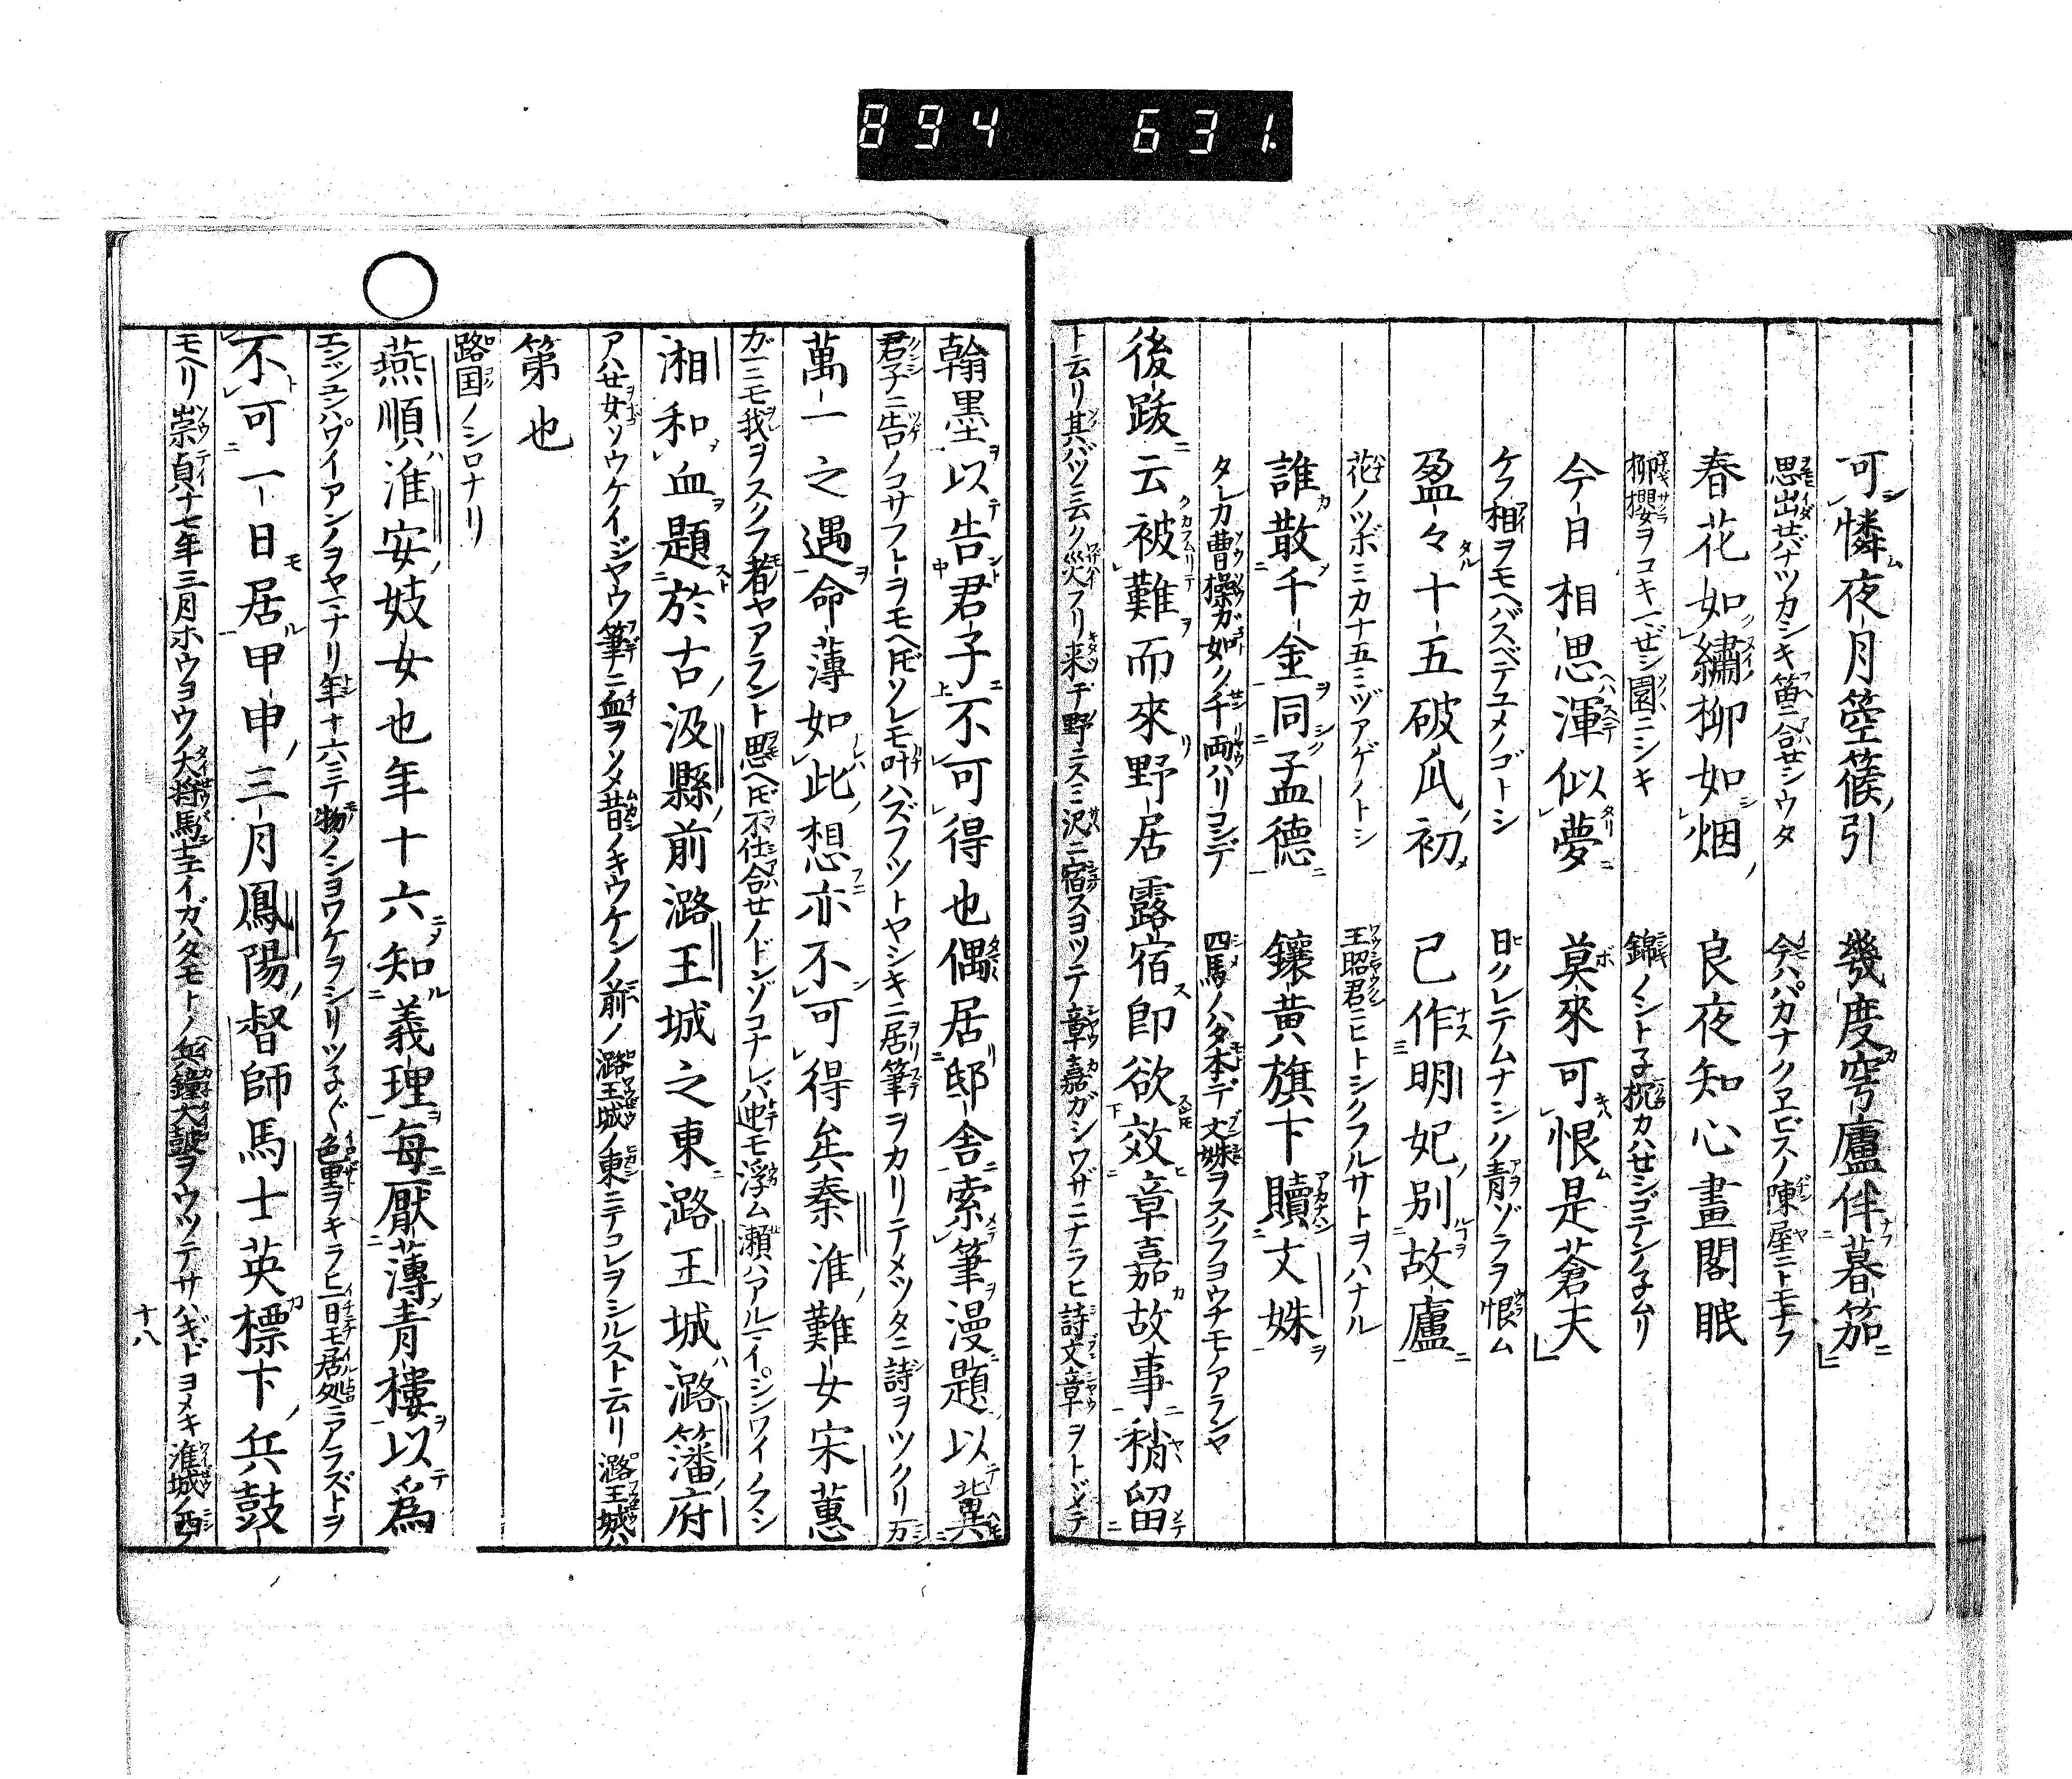 894 631.
可憐夜月箜篌引 幾度穹廬伴暮笳
思出セバナツカシキ箜ニ合セシウタ 今ハハカナクヱビスノ陳屋ニトモナフ
春花如繡柳如烟 良夜知心畫閣眠
柳櫻ヲコキマゼシ園ニシキ 錦ノシトネ枕カハセシゴテンノネムリ
今日相思渾似夢 莫來可恨是蒼夫
ケフ相ヲモヘバスベテユメノゴトシ 日クレテムナシク青ゾラヲ恨ム
盈々十五破瓜初 已作明妃別故廬
花ノツボミカ十五ミヅアゲノトシ 王昭君ニヒトシクフルサトヲハナル
誰散千金同孟德 鑲黄旗下贖文姝
タレカ曹操ガ如ク千両ハリコンデ 四馬ノハタ本デ文姝ヲスクフヨウナモノアランヤ
後跋云被難而來野居露宿即欲效章嘉故事稍留
ト云リ其バツニ云ク災フリ来テ野ニスミ沢ニ宿スヨツテ章嘉ガシワザニナラヒ詩文章ヲトドメテ
翰墨以告君子不可得也偶居邸舍索筆漫題以冀
君子ニ告ノコサフトヲモヘ𪜈ソレモ叶ハズフツトヤシキニ居筆ヲカリテメツタニ詩ヲツクリ万
萬一之遇命薄如此想亦不可得矣秦淮難女宋蕙
ガ一ニモ我ヲスクフ者ヤアラント思ヘ𪜈不仕合セノドンゾコナレバ迚モ浮ム瀬ハアルマイシンワイノフシ
湘和血題於古汲縣前潞王城之東潞王城潞籓府
アハセ女ソウケイジヤウ筆ニ血ヲソメ昔ノキウケンノ前ノ潞王城ノ東ニテコレヲシルスト云リ潞王城ハ
第也
路国ノシロナリ
燕順淮安妓女也年十六知義理每厭薄青樓以爲
エンジユンハワイアンノヲヤマナリ年十六ニテ物ノシヨワケヲシリツネ〲色里ヲキラヒ一日モ居処ニアラズトヲ
不可一日居甲申三月鳳陽督師馬士英標下兵鼓
モヘリ崇貞十七年三月ホウヨウノ大将馬士エイガハタモトノ兵鐘大鼓ヲウツテサハギドヨメキ淮城ノ西ノ
十八